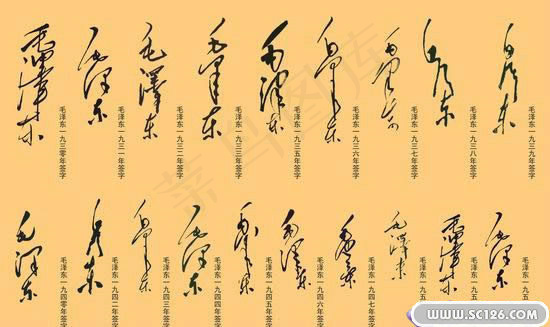 毛泽东
毛泽东一九三零年签字
毛泽东
毛泽东一九三一年签字
毛泽东
毛泽东一九三二年签字
毛泽东
毛泽东一九三三年签字
毛泽东
毛泽东一九三五年签字
毛泽东
毛泽东一九三六年签字
毛泽东
毛泽东一九三七年签字
毛泽东
毛泽东一九三八年签字
毛泽东
毛泽东一九三九年签字
毛泽东
毛泽东一九四零年签字
毛泽东
毛泽东一九四二年签字
毛泽东
毛泽东一九四三年签字
毛泽东
毛泽东一九四四年签字
毛泽东
毛泽东一九四五年签字
毛泽东
毛泽东一九四六年签字
毛泽东
毛泽东一九四七年签字
毛泽东
毛泽东一九五
毛泽东
毛泽东一九五
毛泽东
毛泽东一九五
菜鸟图库
WWW.SC126.COM